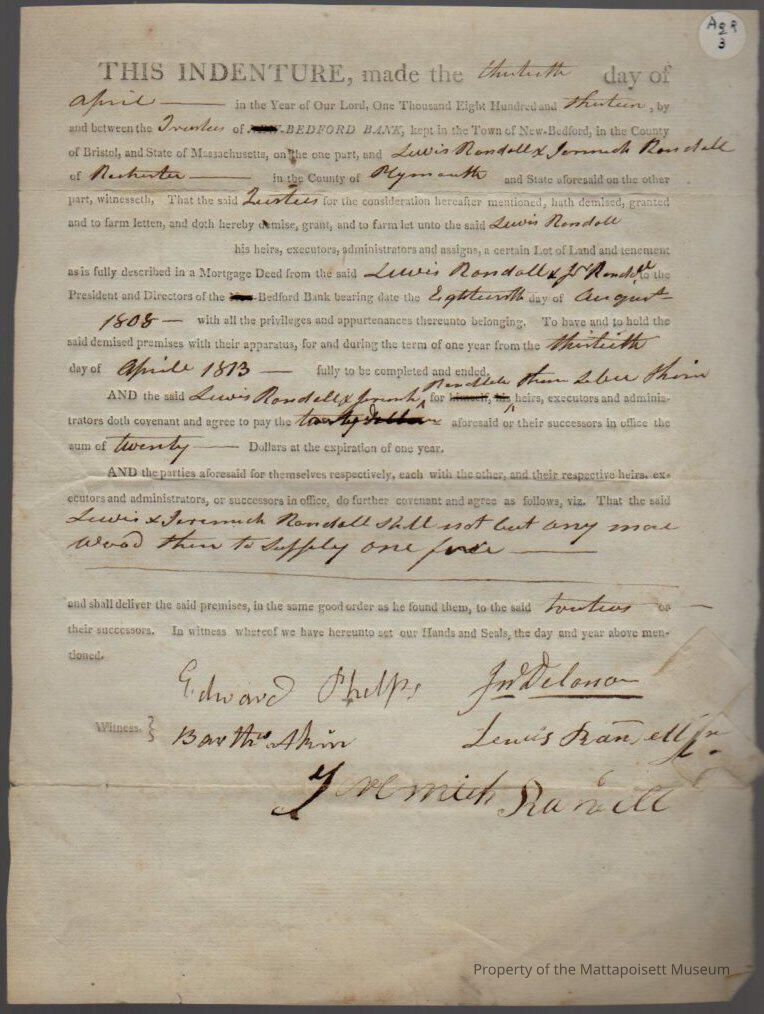 AgR
3
THIS INDENTURE, made the thirtieth day of
April in the Year of Our Lord, One Thousand Eight Hundred and thirteen, by
and between the Trustees of BEDFORD BANK, kept in the Town of New-Bedford, in the County
of Bristol, and State of Massachusetts, on the one part, and Lewis Randall & Jeremiah Randall
of Rochester in the County of Plymouth and State aforesaid on the other
part, witnesseth, That the said Trustees for the consideration hereafter mentioned, hath demised, granted
and to farm letten, and doth hereby demise, grant, and to farm let unto the said Lewis Randall
his heirs, executors, administrators and assigns, a certain Lot of Land and tenement
as is fully described in a Mortgage Deed from the said Lewis Randall & Jr Randall to the
President and Directors of the Bedford Bank bearing date the Eighteenth day of August
1808 — with all the privileges and appurtenances thereunto belonging. To have and to hold the
said demised premises with their apparatus, for and during the term of one year from the thirtieth
day of Aprile 1813 — fully to be completed and ended.
AND the said Lewis Randall & Randall for himself, his heirs, executors and adminis-
trators doth covenant and agree to pay the aforesaid or their successors in office the
sum of twenty — Dollars at the expiration of one year.
AND the parties aforesaid for themselves respectively, each with the other, and their respective heirs, ex-
ecutors and administrators, or successors in office, do further covenant and agree as follows, viz. That the said
Lewis & Jeremiah Randall shall not cut any more
wood then to supply one fire —
and shall deliver the said premises, in the same good order as he found them, to the said or —
their successors. In witness whereof we have hereunto set our Hands and Seals, the day and year above men-
tioned.
Edward Phelps Jno Delano
Witness. } Barthw Akin Lewis Randell Jr.
Jeremiah Randell
Property of the Mattapoisett Museum